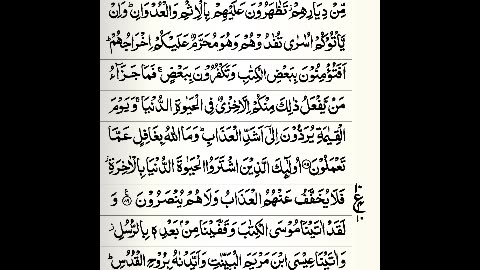 مِّنْ دِيَارِهِمْ تَظٰهَرُوْنَ عَلَيْهِمْ بِالْاِثْمِ وَالْعُدْوَانِ ؕ وَاِنْ
يَّاْتُوْكُمْ اُسٰرٰى تُفٰدُوْهُمْ وَهُوَ مُحَرَّمٌ عَلَيْكُمْ اِخْرَاجُهُمْ ؕ
اَفَتُؤْمِنُوْنَ بِبَعْضِ الْكِتٰبِ وَتَكْفُرُوْنَ بِبَعْضٍ ۚ فَمَا جَزَآءُ
مَنْ يَّفْعَلُ ذٰلِكَ مِنْكُمْ اِلَّا خِزْىٌ فِى الْحَيٰوةِ الدُّنْيَا ۚ وَيَوْمَ
الْقِيٰمَةِ يُرَدُّوْنَ اِلٰٓى اَشَدِّ الْعَذَابِ ؕ وَمَا اللّٰهُ بِغَافِلٍ عَمَّا
تَعْمَلُوْنَ ۝ اُولٰٓئِكَ الَّذِيْنَ اشْتَرَوُا الْحَيٰوةَ الدُّنْيَا بِالْاٰخِرَةِ ؗ
فَلَا يُخَفَّفُ عَنْهُمُ الْعَذَابُ وَلَا هُمْ يُنْصَرُوْنَ ۝ وَ
لَقَدْ اٰتَيْنَا مُوْسَى الْكِتٰبَ وَقَفَّيْنَا مِنْۢ بَعْدِهٖ بِالرُّسُلِ ؗ
وَاٰتَيْنَا عِيْسَى ابْنَ مَرْيَمَ الْبَيِّنٰتِ وَاَيَّدْنٰهُ بِرُوْحِ الْقُدُسِ ؕ